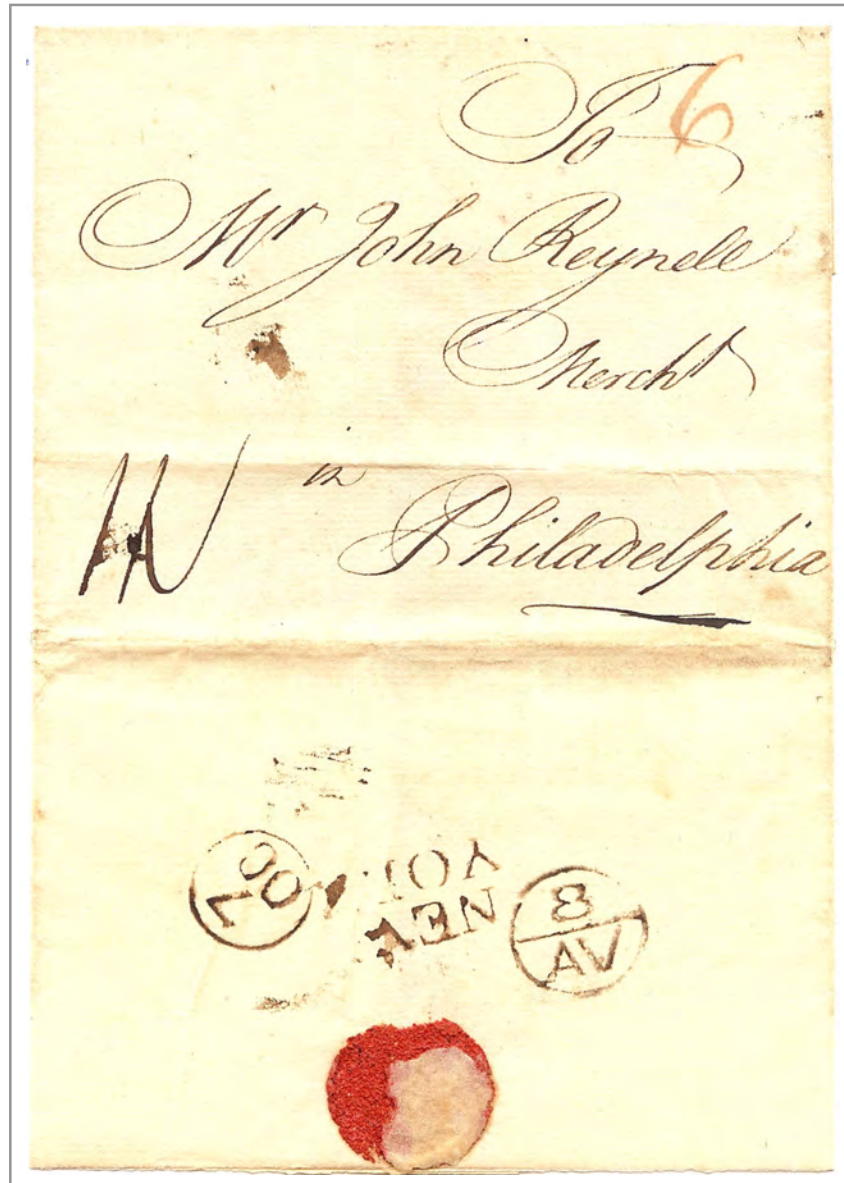 To 6
Mr John Reynell
Mercht
in
Philadelphia
NEW
8
AV